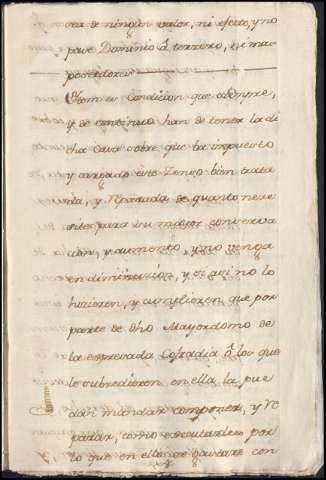 sea de ningun valor, ni efecto, y no
pase Dominio á terzero, ni mas
poseedores
Item es Condicion que siempre,
y de continuo han de tener la di
cha Casa sobre que ba impuesto
y cargado este Zenso bien trata
da, y reparada de quanto nece
site para su maior conserva
cion, y aumento, y no venga
en diminucion, y si asi no lo
hizieren, y cumplieren que por
parte de dho Mayordomo de
la expresada Cofradia ó los que
le subcedieren en ella la pue
dan mandar componer, y re
parar, como executarles por
lo que en ello se gastare con